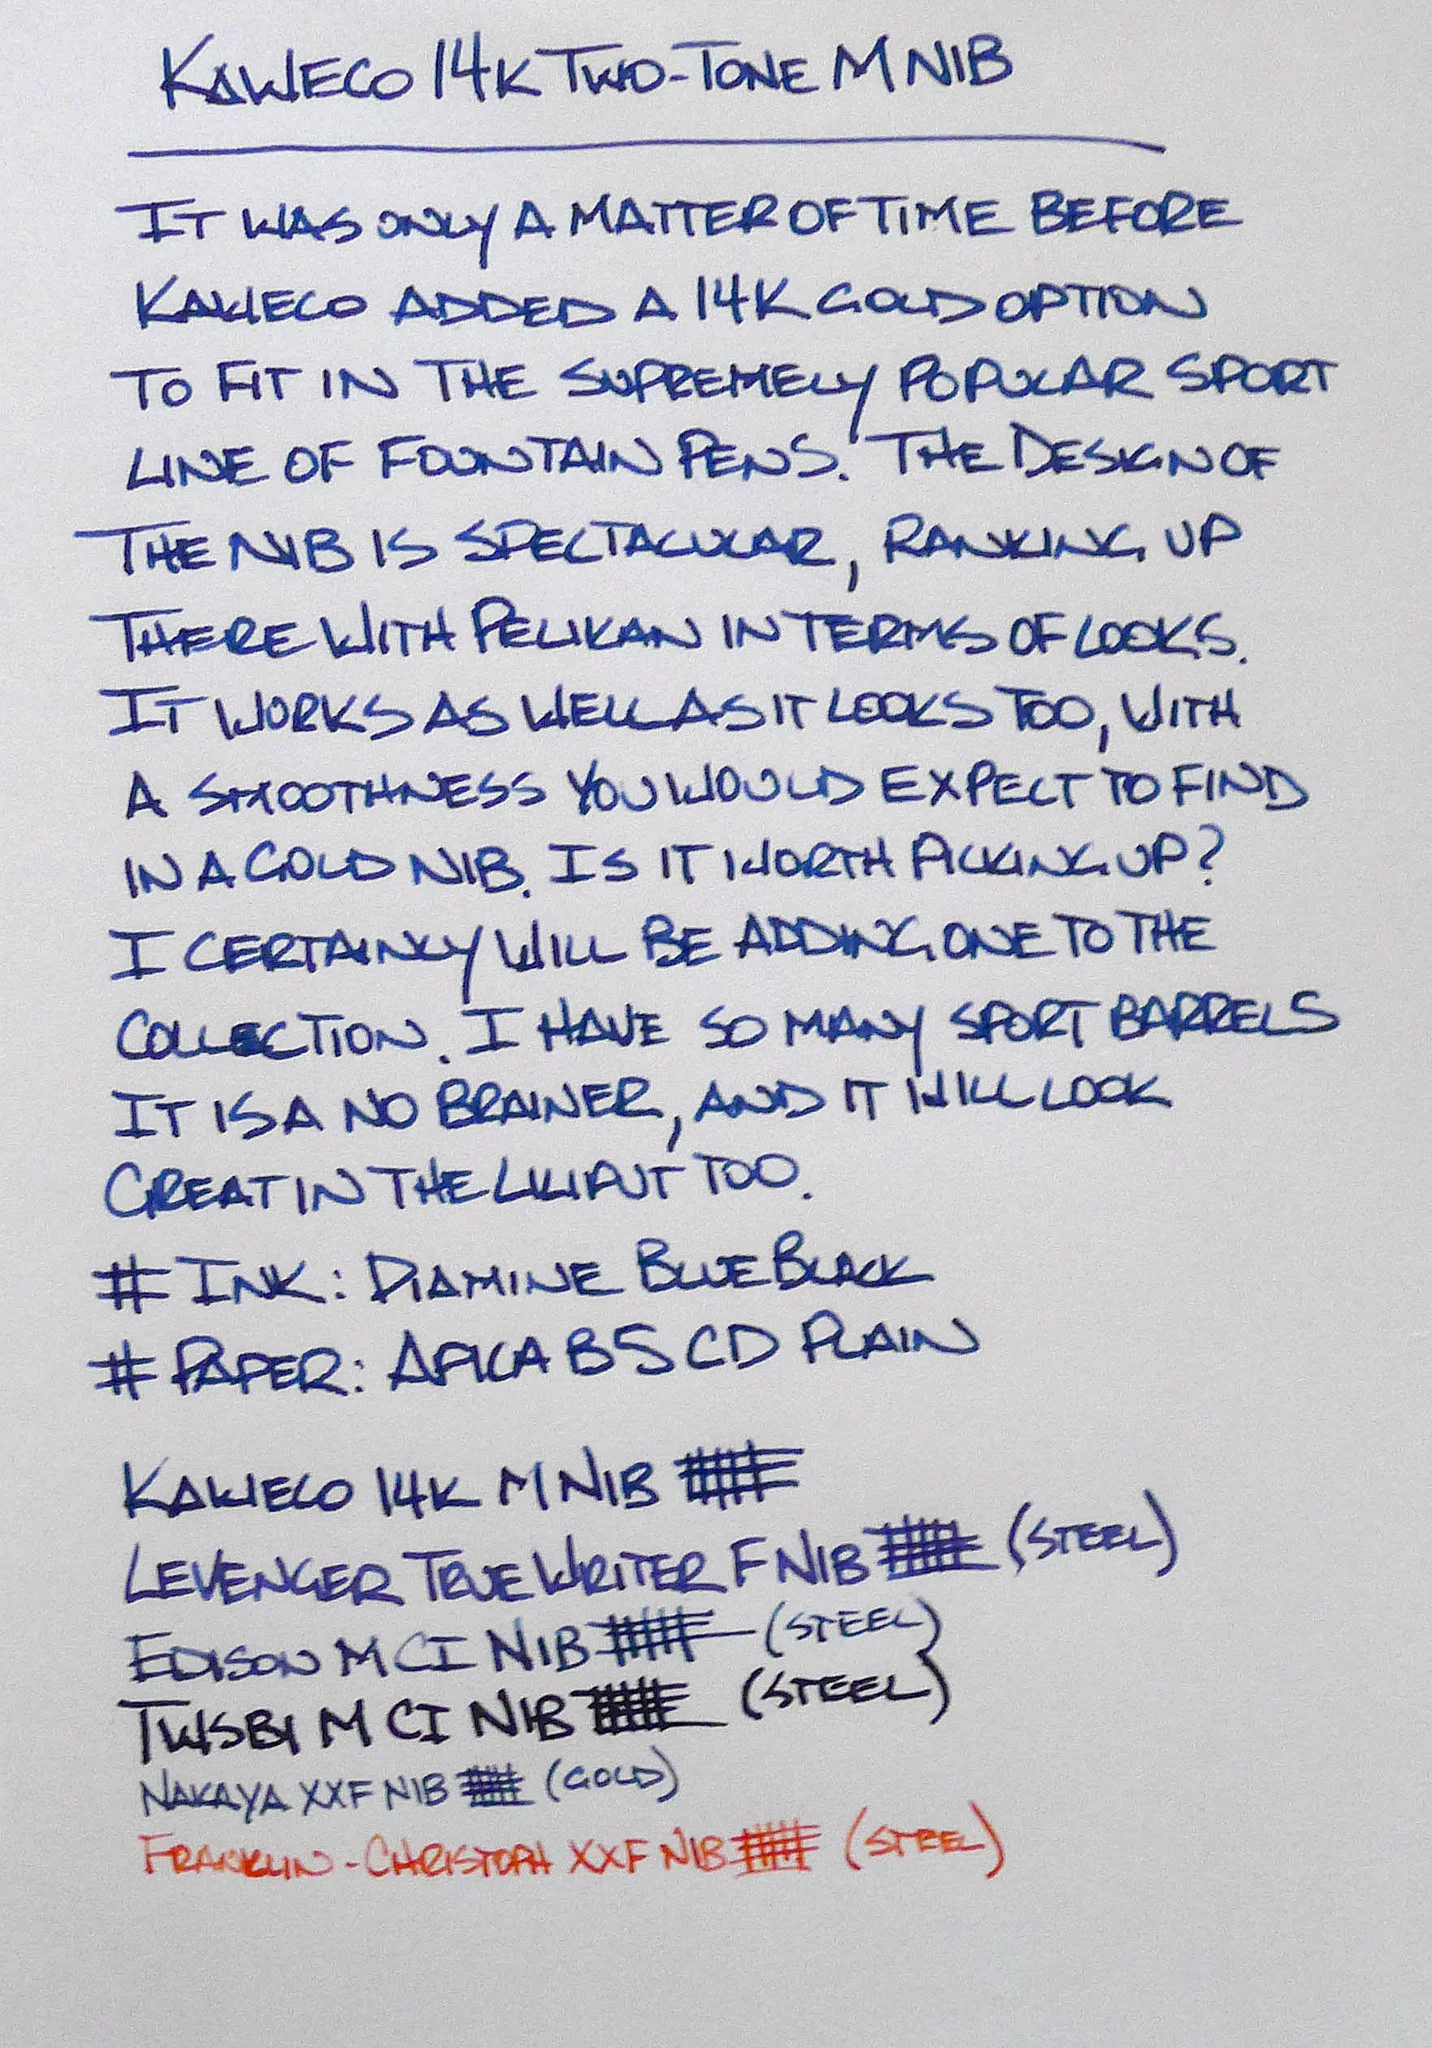 KAWECO 14K TWO-TONE M NIB
IT WAS ONLY A MATTER OF TIME BEFORE
KAWECO ADDED A 14K GOLD OPTION
TO FIT IN THE SUPREMELY POPULAR SPORT
LINE OF FOUNTAIN PENS. THE DESIGN OF
THE NIB IS SPECTACULAR, RANKING UP
THERE WITH PELIKAN IN TERMS OF LOOKS.
IT WORKS AS WELL AS IT LOOKS TOO, WITH
A SMOOTHNESS YOU WOULD EXPECT TO FIND
IN A GOLD NIB. IS IT WORTH PICKING UP?
I CERTAINLY WILL BE ADDING ONE TO THE
COLLECTION. I HAVE SO MANY SPORT BARRELS
IT IS A NO BRAINER, AND IT WILL LOOK
GREAT IN THE LILIPUT TOO.
# INK: DIAMINE BLUE BLACK
# PAPER: APICA B5 CD PLAIN
KAWECO 14K M NIB
LEVENGER TRUE WRITER F NIB (STEEL)
EDISON M CI NIB (STEEL)
TWSBI M CI NIB (STEEL)
NAKAYA XXF NIB (GOLD)
FRANKLIN-CHRISTOPH XXF NIB (STEEL)